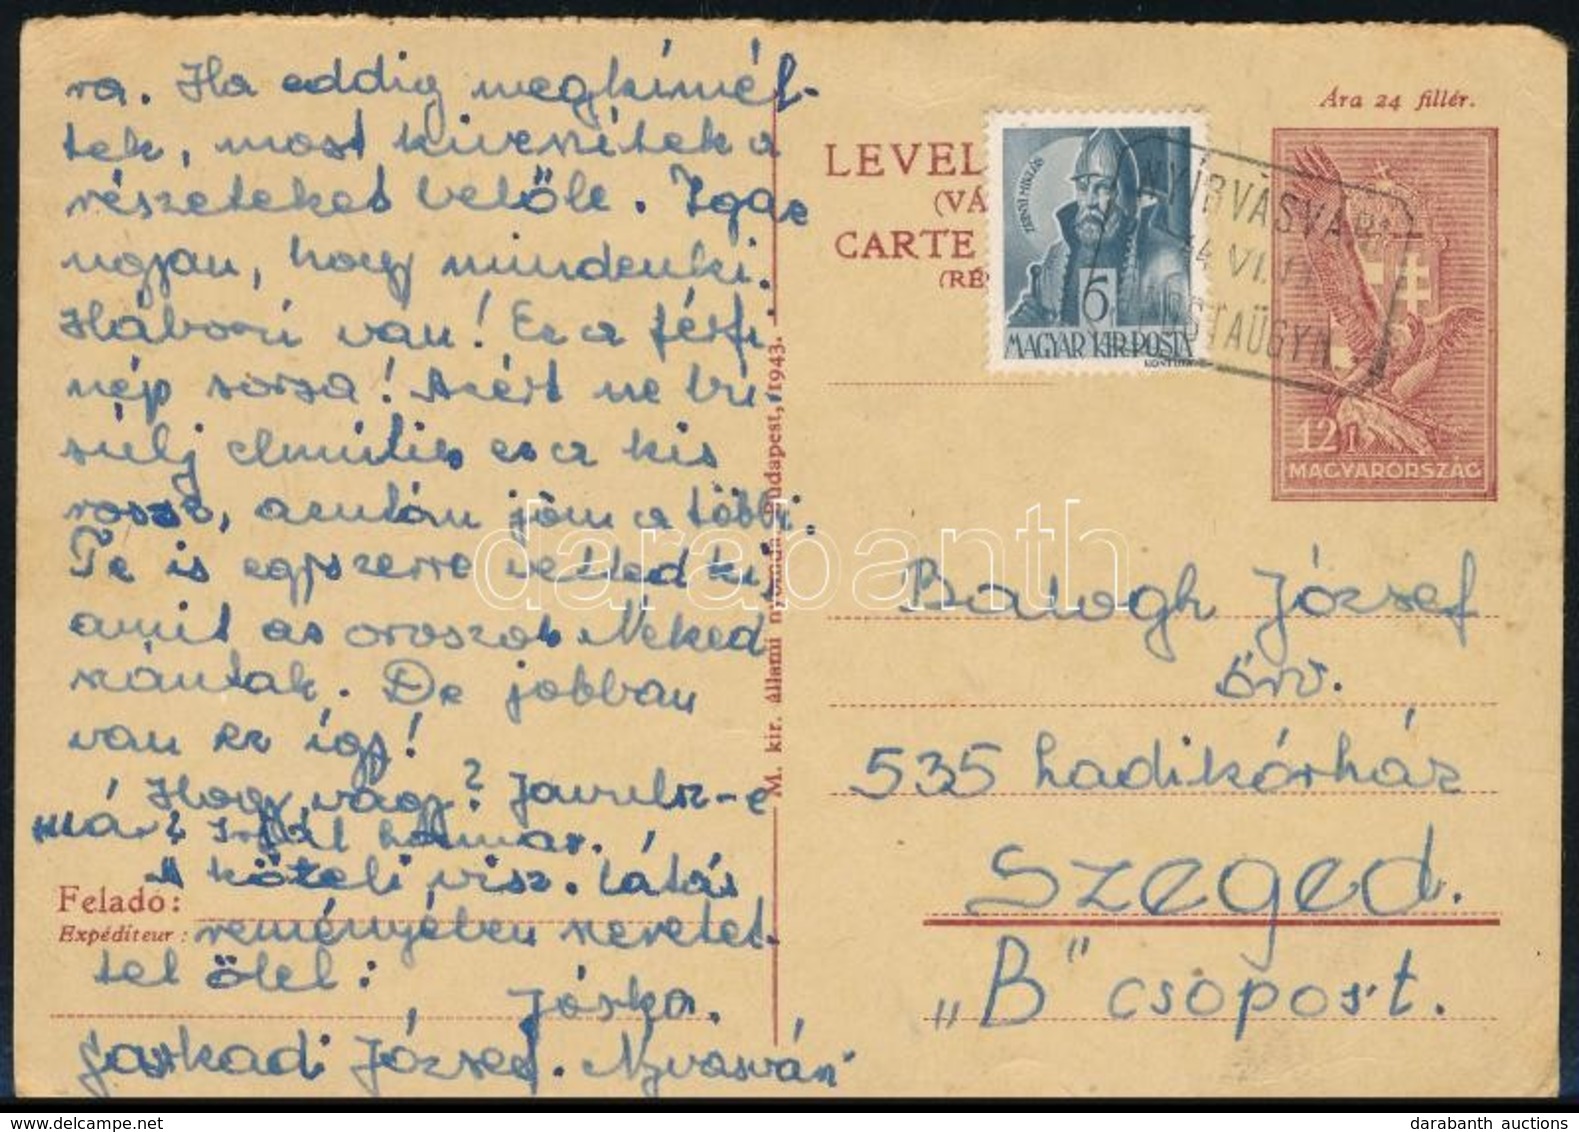 ra. Ha eddig megkímél-
tek, most kiveszitek a
részeteket belőle. Igaz
ugyan, hogy mindenki.
Háború van! Ez a férfi
nép sorsa! Azért ne bú-
sulj elmúlik ez a kis
rossz, azután jön a többi.
Te is egyszerre vetted ki,
amit az oroszok Neked
szántak. De jobban
van ez így!
Hogy vagy? Javulsz-e
már? Írjál hamar.
A közeli visz. látás
Feladó:
Expéditeur:
reményében szeretet-
tel ölel:
Jóska.
Sarkadi József. Nyvasvári
M. kir. állami nyomda, Budapest, 1943.
Ára 24 fillér.
LEVEL
(VÁ
CARTE
(RÉ
ZRÍNYI MIKLÓS
6
MAGYAR KIR. POSTA
NYÍRVÁSVÁRI
44 VI.
POSTAÜGYN.
12 f.
MAGYARORSZÁG
Balogh József
őrv.
535 hadikórház
Szeged.
„B" csoport.
darabanth
www.darabanth-auctions.com